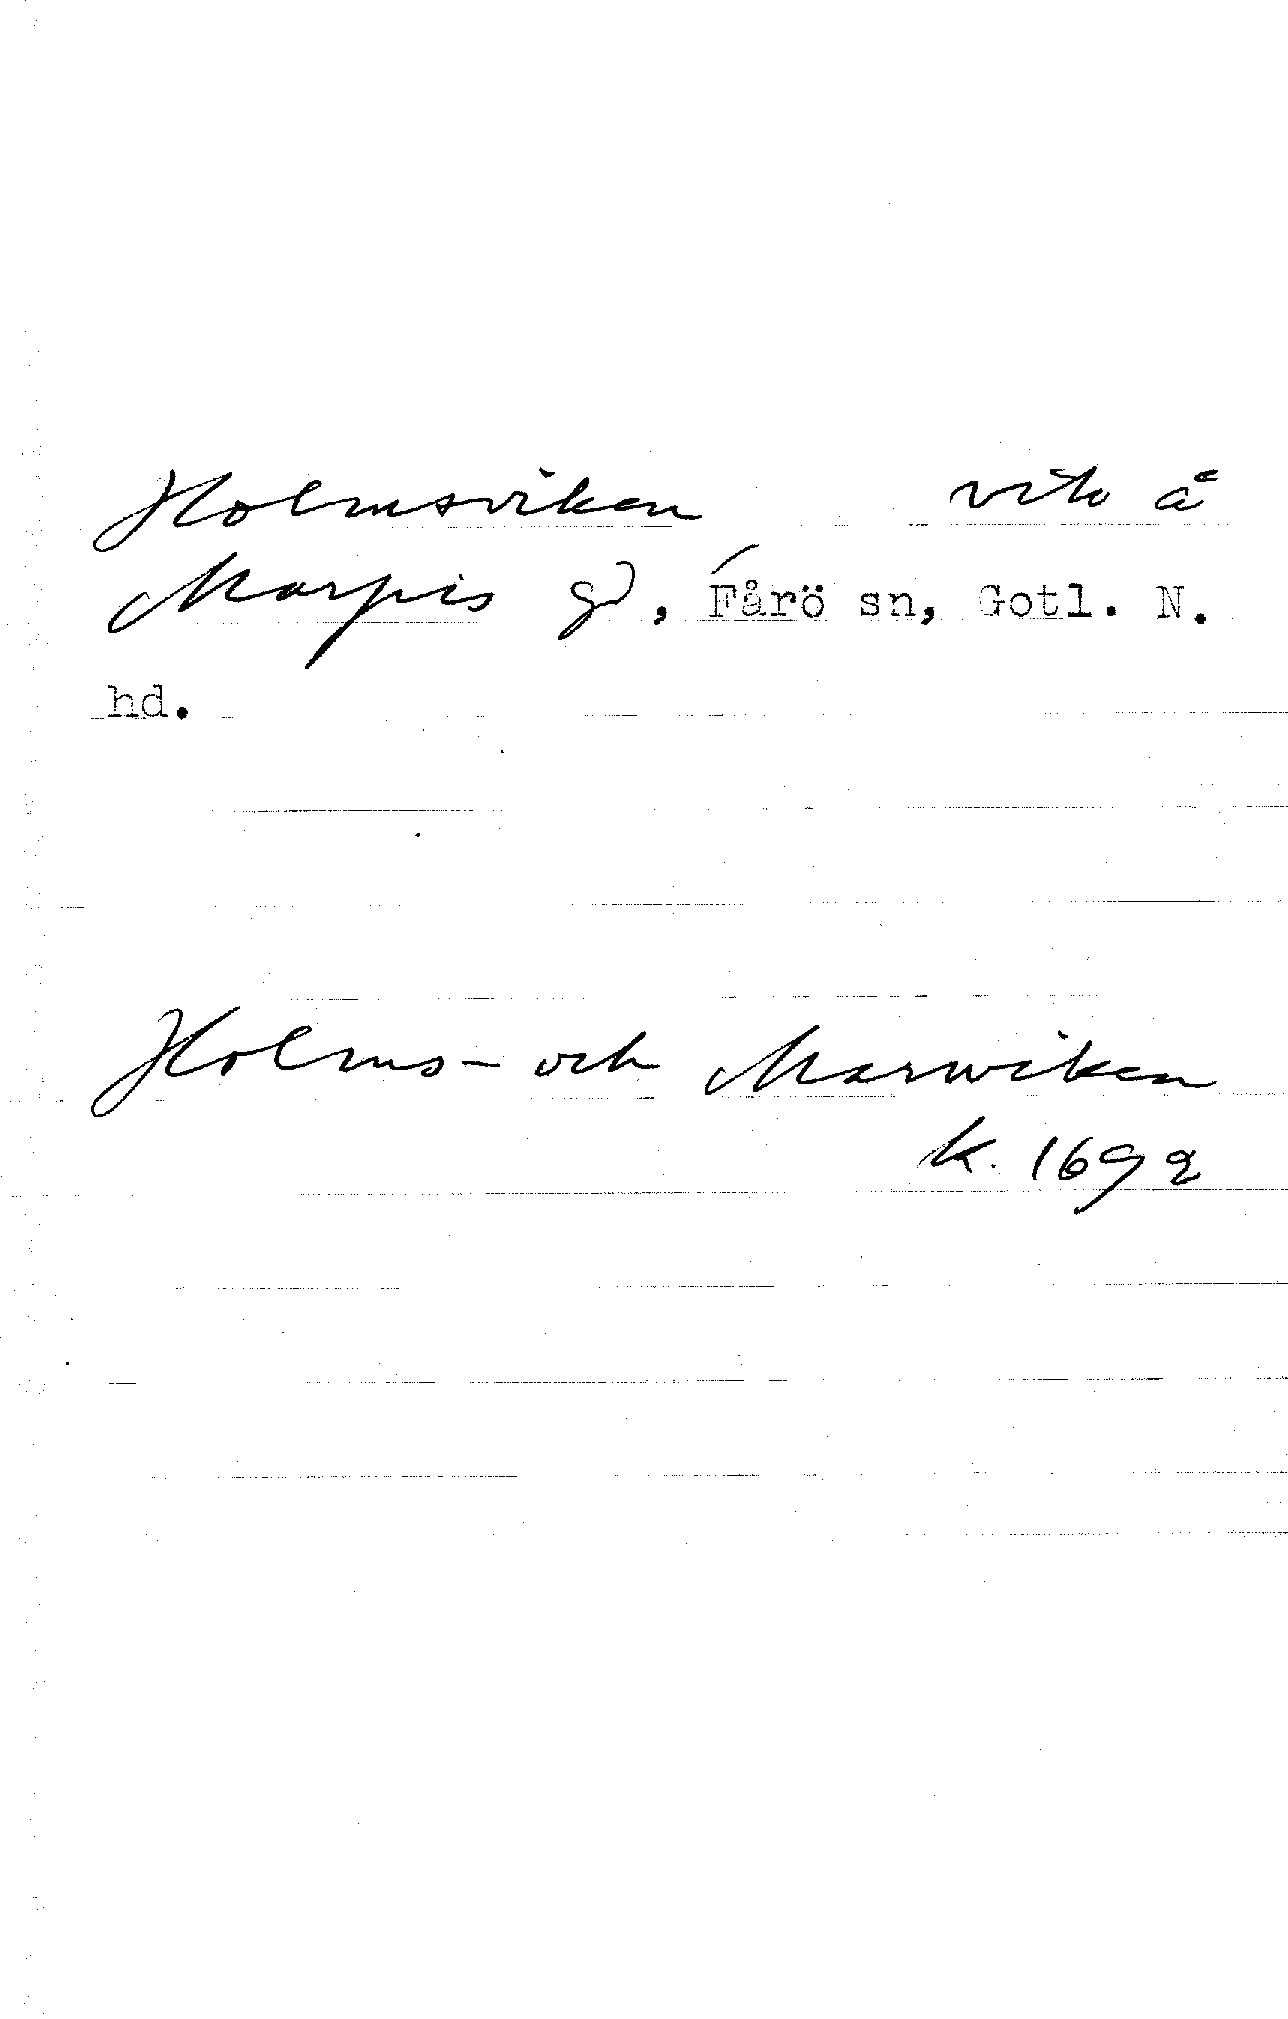 Holmsviken vik å
Marpis gd, Fårö sn, Gotl. N.
hd.
Holms- och Marwiken
k. 1692